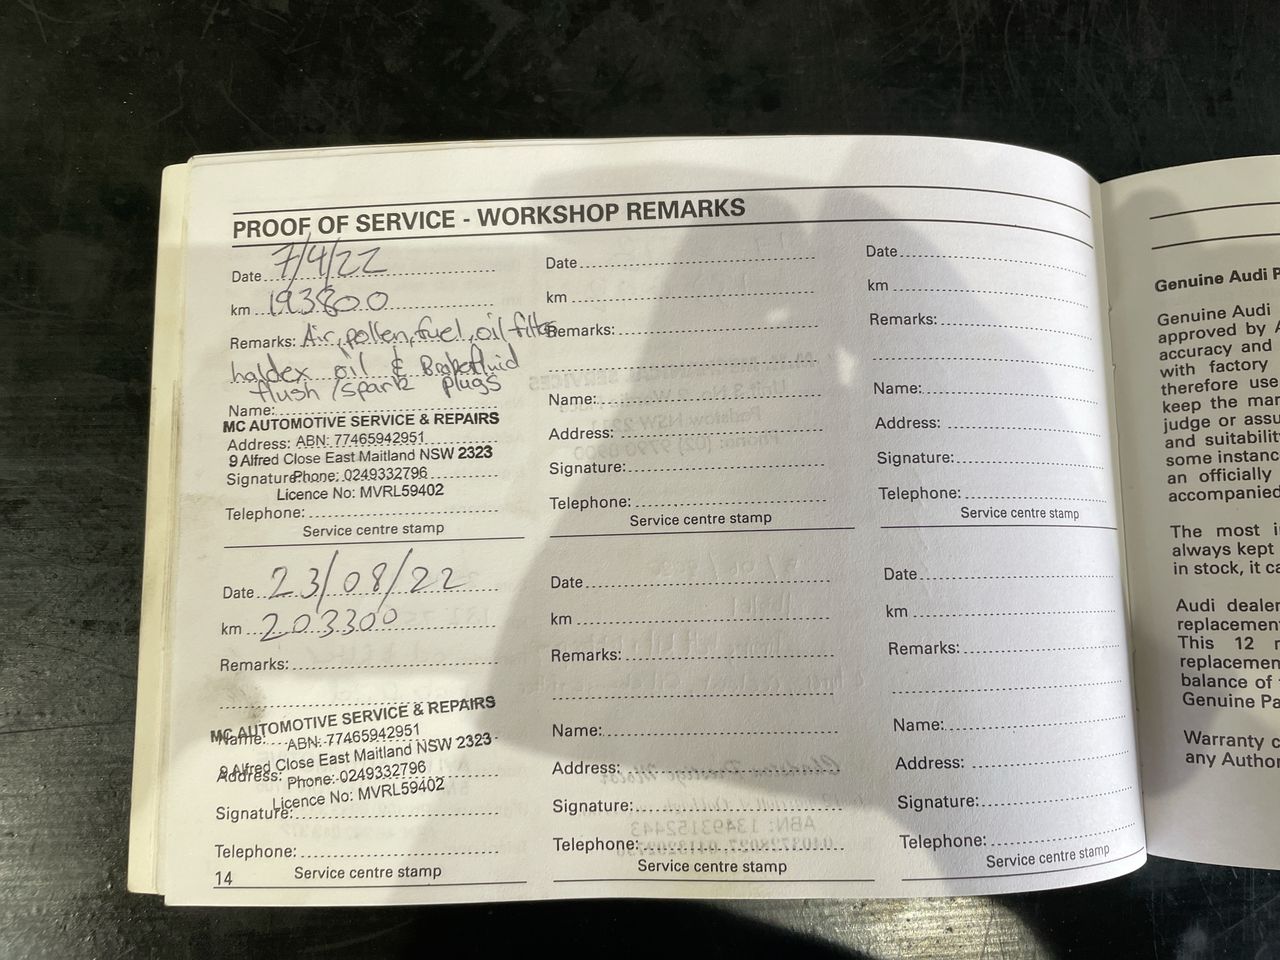 PROOF OF SERVICE - WORKSHOP REMARKS
Date 7/4/22
km 193800
Remarks: Air, pollen, fuel, oil filter
haldex oil & Brake fluid
flush /spark plugs
Name:
MC AUTOMOTIVE SERVICE & REPAIRS
Address: ABN: 77465942951
9 Alfred Close East Maitland NSW 2323
Signature: Phone: 0249332796
Licence No: MVRL59402
Telephone:
Service centre stamp
Date 23/08/22
km 203300
Remarks:
MC AUTOMOTIVE SERVICE & REPAIRS
Name: ABN: 77465942951
9 Alfred Close East Maitland NSW 2323
Address: Phone: 0249332796
Licence No: MVRL59402
Signature:
Telephone:
Service centre stamp
14
Date
km
Remarks:
Name:
Address:
Signature:
Telephone:
Service centre stamp
Date
km
Remarks:
Name:
Address:
Signature:
Telephone:
Service centre stamp
Date
km
Remarks:
Name:
Address:
Signature:
Telephone:
Service centre stamp
Date
km
Remarks:
Name:
Address:
Signature:
Telephone:
Service centre stamp
Genuine Audi P
Genuine Audi
approved by A
accuracy and
with factory
therefore use
keep the man
judge or assu
and suitability
some instanc
an officially
accompanied
The most i
always kept
in stock, it ca
Audi dealer
replacement
This 12 m
replacemen
balance of
Genuine Pa
Warranty c
any Author